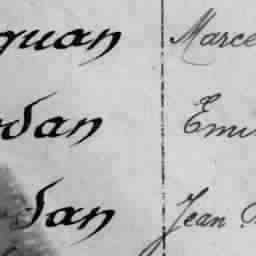 quan Marce
dan Emi
dan Jean